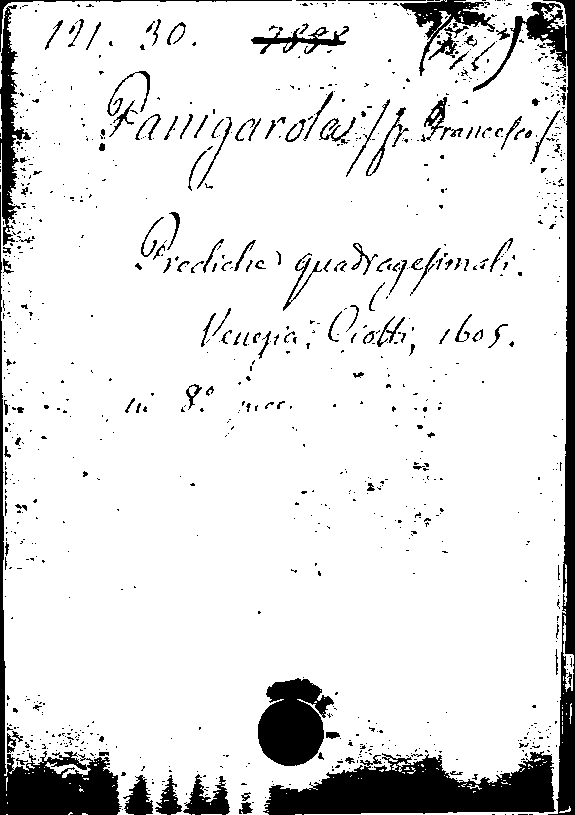 121. 30. 7898
Panigarola /fr. Francesco/
Prediche quadragesimali.
Venezia, Ciotti, 1605.
in 8.º picc.